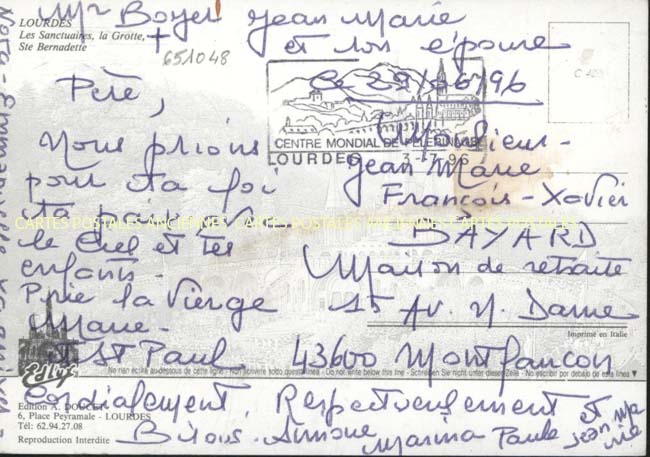 Mr Boyer Jean Marie
et son épouse
LOURDES
Les Sanctuaires, la Grotte,
Ste Bernadette
651048
Le 29/06/96
CENTRE MONDIAL DE PELERINAGE
LOURDES 3-7-96
Père,
Nous prions
pour ta foi
ta
le Ciel et tes
enfants -
Prie la Vierge
Marie -
et St Paul
Monsieur -
Jean Marie
François - Xavier
BAYARD
Maison de retraite
15 Av. N. Dame
43600 Montfaucon
CARTES POSTALES ANCIENNES
Imprimé en Italie
Ne rien écrire au-dessous de cette ligne - Non scrivere sotto questa linea - Do not write below this line - Schreiben Sie nicht unter dieser Zeile - No escribir por debajo de esta línea
Cordialement, Respectueusement
Edition A. DOUCET
6, Place Peyramale - LOURDES
Tél: 62.94.27.08
Reproduction Interdite
Bisous - Simone
Marina Paule et
Jean Ma
rie